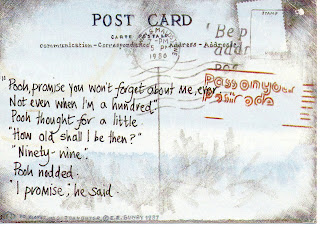 POST CARD
CARTE POSTALE
Communication - Correspondance Address - Adresse
1986
'Be p
addr
Pos
"Pooh, promise you won't forget about me, ever.
Not even when I'm a hundred."
Pooh thought for a little.
"How old shall I be then?"
"Ninety-nine."
Pooh nodded.
"I promise", he said.